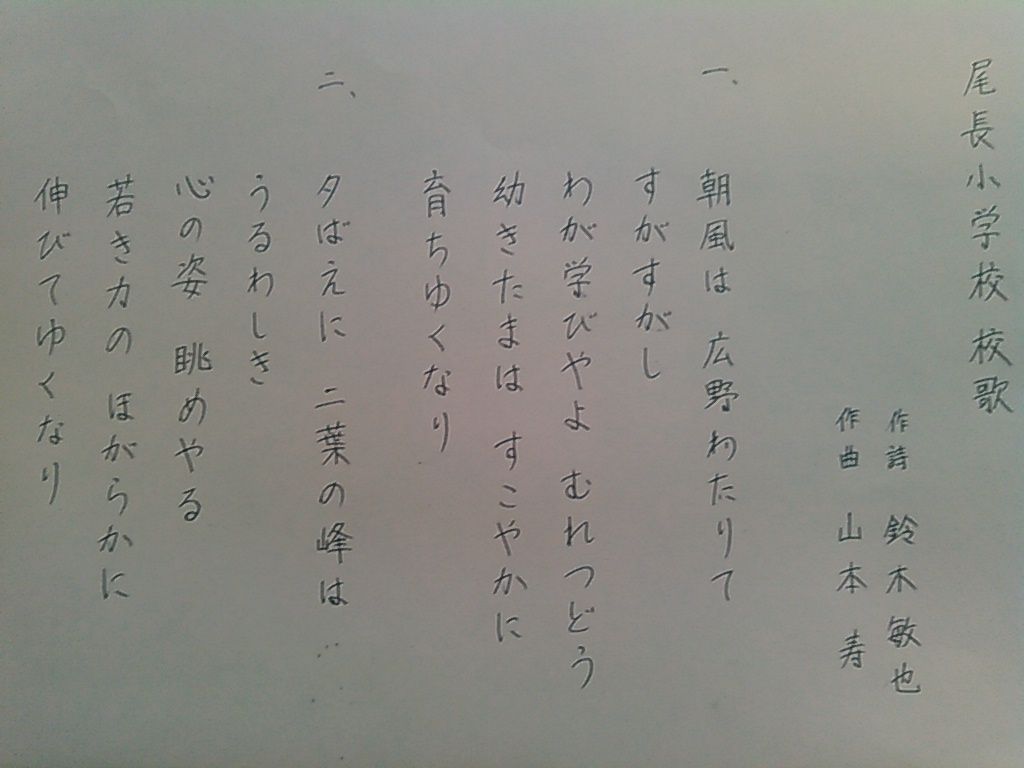 尾長小学校 校歌
作詩 鈴木敏也
作曲 山本 寿
一、
朝風は 広野わたりて
すがすがし
わが学びやよ むれつどう
幼きたまは すこやかに
育ちゆくなり
二、
夕ばえに 二葉の峰は
うるわしき
心の姿 眺めやる
若き力の ほがらかに
伸びてゆくなり